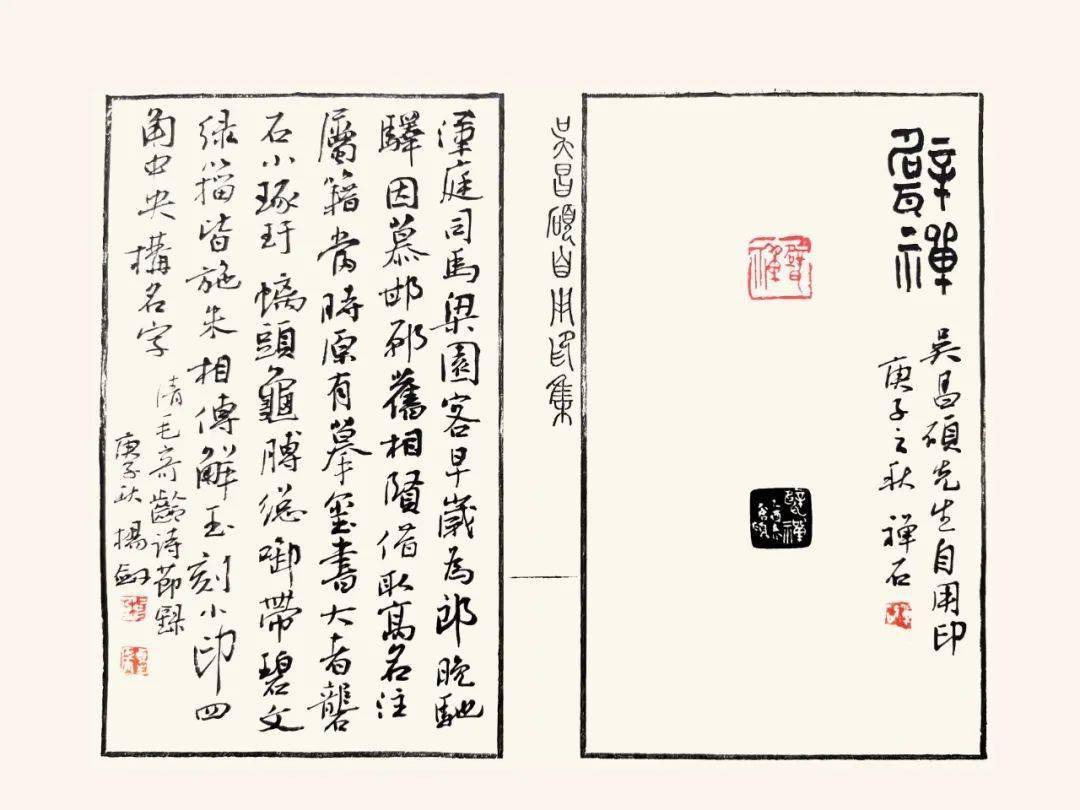 甓禪
吴昌碩先生自用印
庚子之秋 禅石
甓禪
吳昌碩自用印集
庭司馬梁園客早歲為郎晚馳
驛因慕邯鄲舊相賢借取高名注
屬籍當時原有摹璽書大者礱
石小琢玗螭頭龜膊總啣帶碧文
緑皆施朱相傳解玉刻小印四
角中央構名字
清毛奇齡诗節錄
庚子秋 楊劍